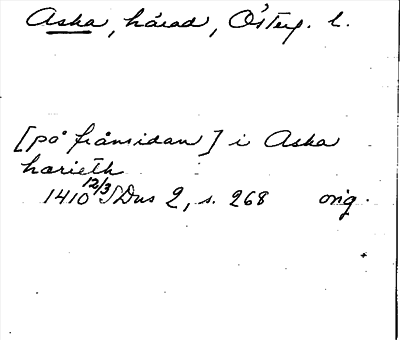 Aska, härad, Österg. l.
[på framsidan] i Aska
hærieth
1410 12/3 SDns 2, s. 268 orig.